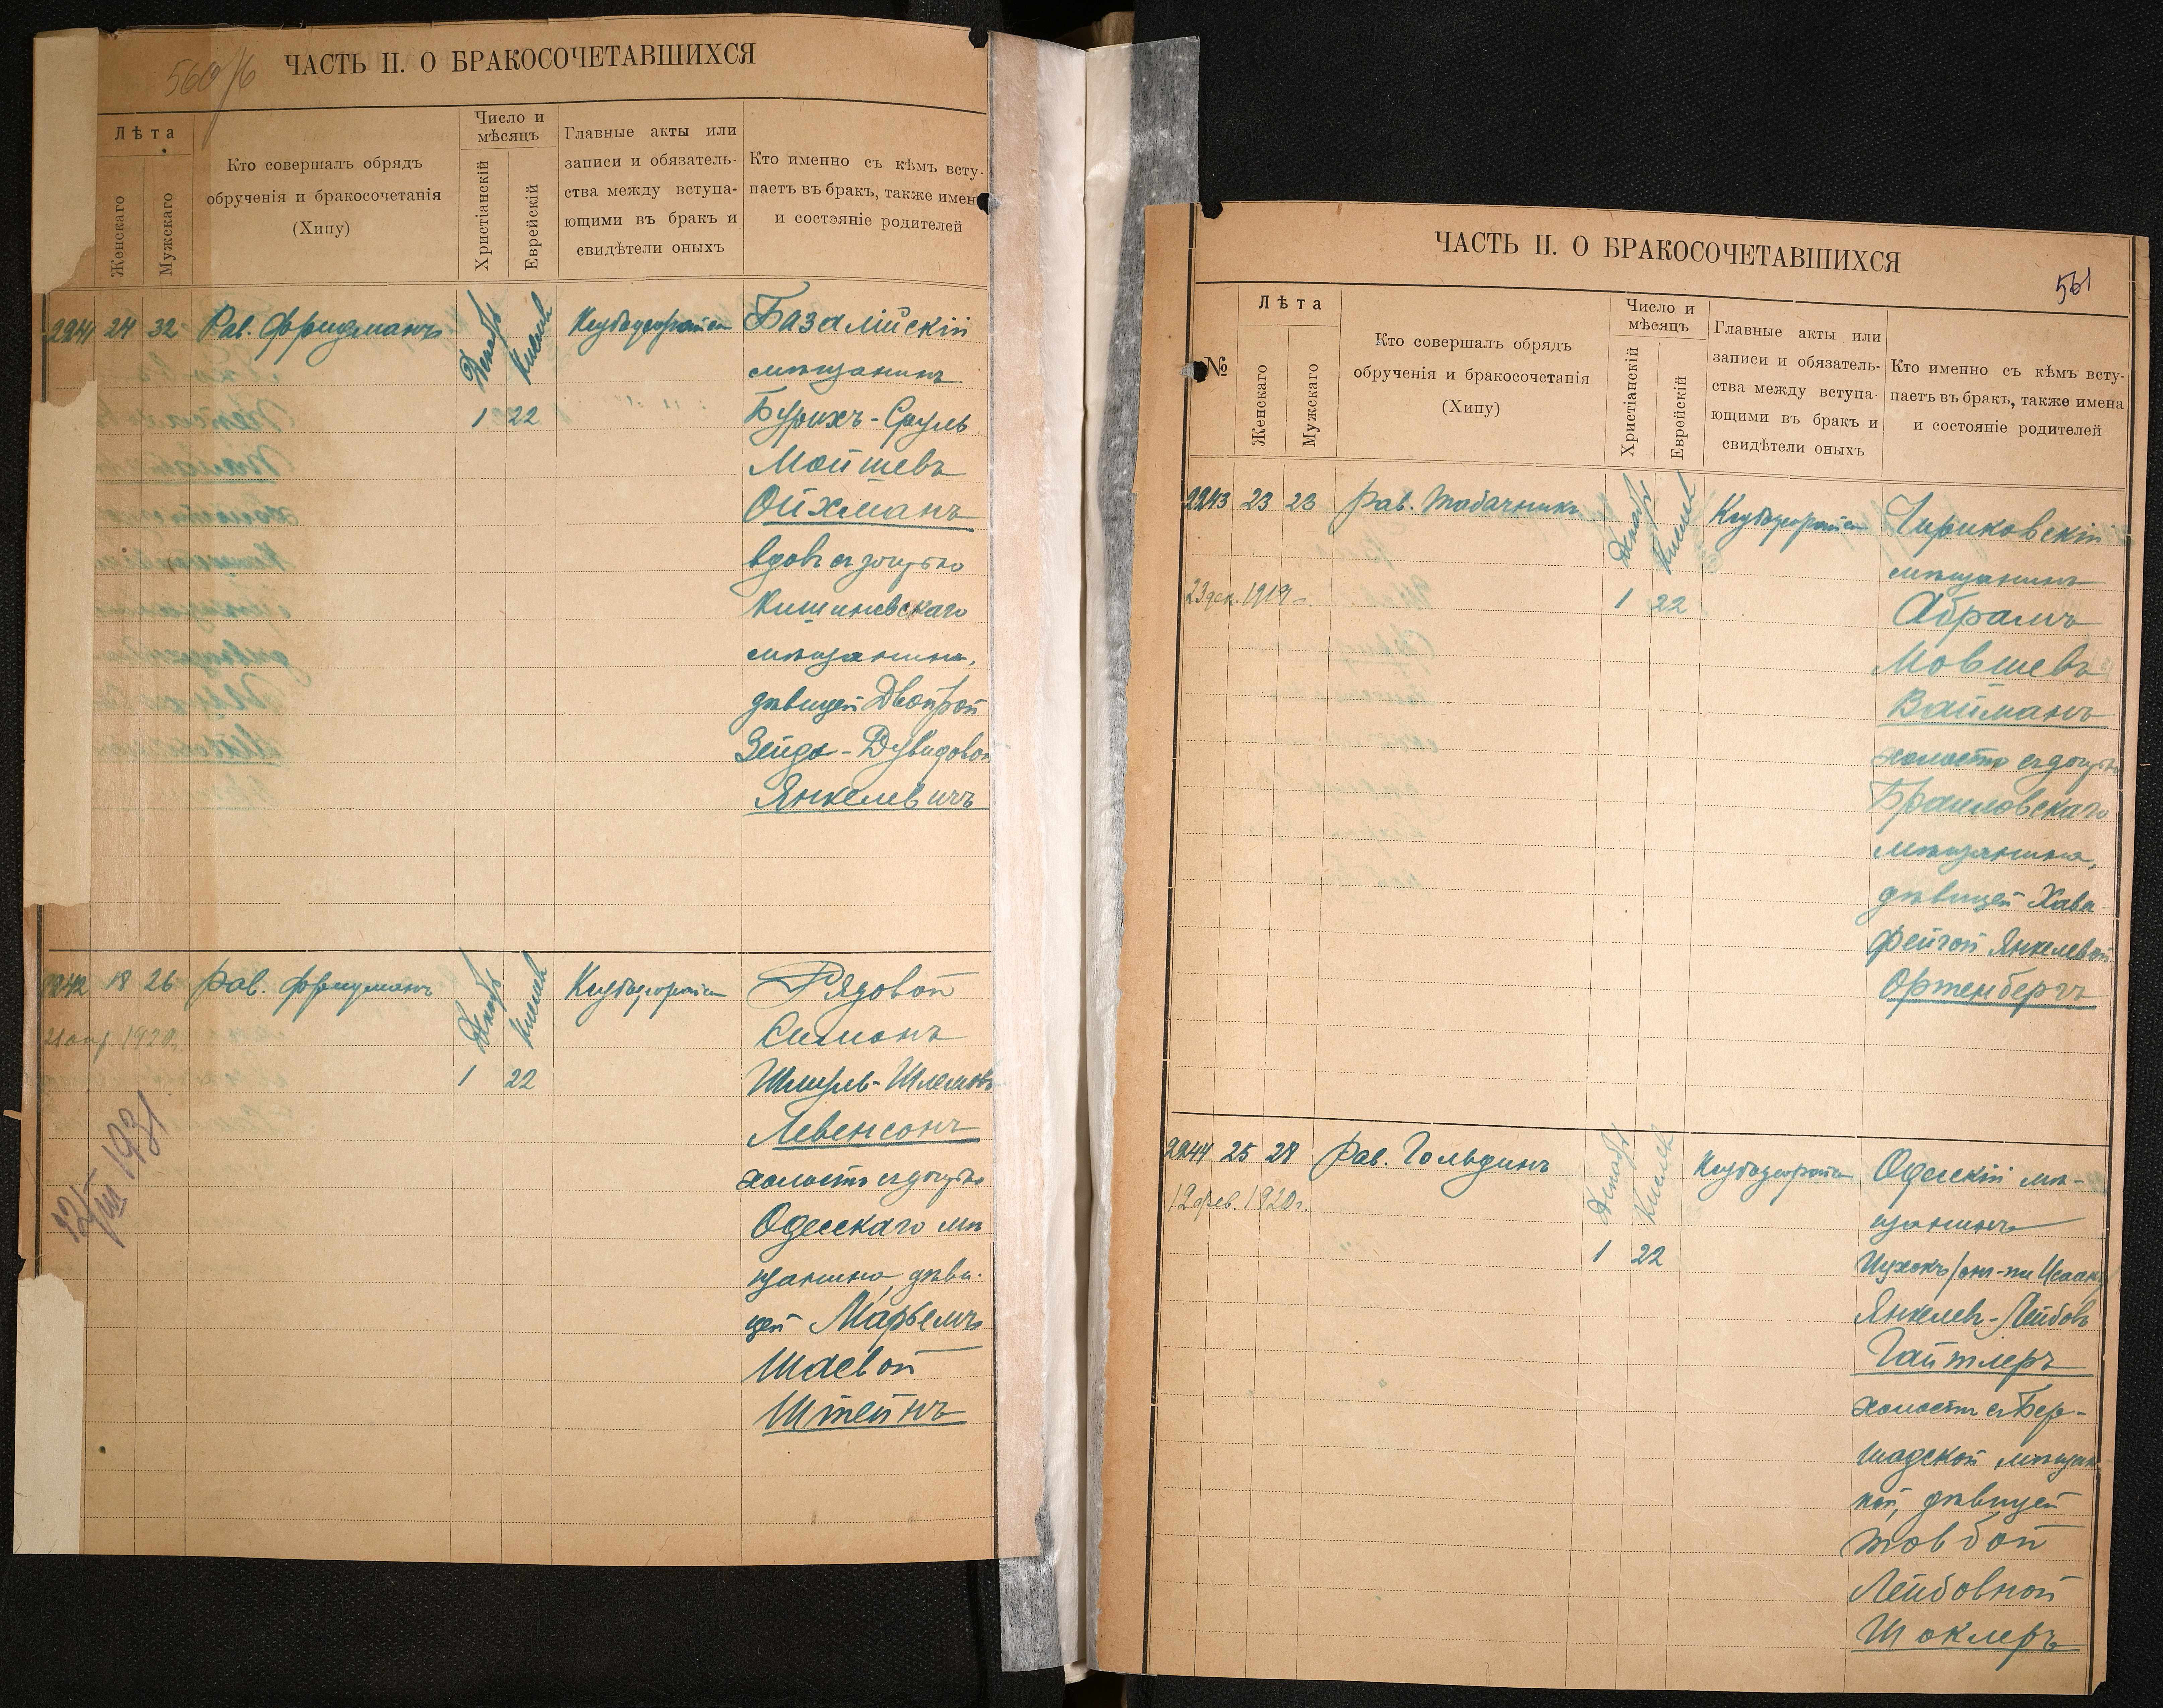 560/6
ЧАСТЬ II. О БРАКОСОЧЕТАВШИХСЯ
Лѣта
Женскаго
Мужскаго
Кто совершалъ обрядъ
обрученія и бракосочетанія
(Хипу)
Число и
мѣсяцъ
Христіанскій
Еврейскій
Главные акты или
записи и обязатель-
ства между вступа-
ющими въ бракъ и
свидѣтели оныхъ
Кто именно съ кѣмъ всту-
паетъ въ бракъ, также имен
и состэяніе родителей
2241 24 32 Рав. Фридманъ
Декабр Кислев
1 22
Базалійскій
мѣщанинъ
Бурихъ-Сруль
Мойшевъ
Ойхманъ
вдов. съ дочерью
Кишиневскаго
мѣщанина,
дѣвицей Двойрой
Зейдъ-Дувидовой
Янкелевичъ
2242 18 26 Рав. Фридманъ
21 апр 1920.
12/III 1931
Декабр Кислев
1 22
Рядовой
Симонъ
Шмуль-Шлемовъ
Левенсонъ
холостъ съ дочерью
Одесскаго мѣ
щанина, дѣви-
цей Марьемъ
Шаевой
Штейнъ
ЧАСТЬ II. О БРАКОСОЧЕТАВШИХСЯ
561
№
Лѣта
Женскаго
Мужскаго
Кто совершалъ обрядъ
обрученія и бракосочетанія
(Хипу)
Число и
мѣсяцъ
Христіанскій
Еврейскій
Главные акты или
записи и обязатель-
ства между вступа-
ющими въ бракъ и
свидѣтели оныхъ
Кто именно съ кѣмъ всту-
паетъ въ бракъ, также имена
и состояніе родителей
2243 23 23 Рав. Табачникъ
23 дек. 1919 г.
Декабр Кислев
1 22
Чириковскій
мѣщанинъ
Абрамъ
Мовшевъ
Вайманъ
холостъ съ дочерью
Браиловскаго
мѣщанина,
дѣвицей Хава-
Фейгой Янкелевой
Ортенбергъ
2244 25 28 Рав. Гольдинъ
12 фев. 1920 г.
Декабр Кислев
1 22
Одесскій мѣ-
щанинъ
Ицхокъ/онъ-же Исаакъ/
Янкелев-Лейбовъ
Гайтлеръ
холостъ съ Бер-
шадской мѣщан
кой, дѣвицей
Товбой
Лейбовной
Шоклеръ